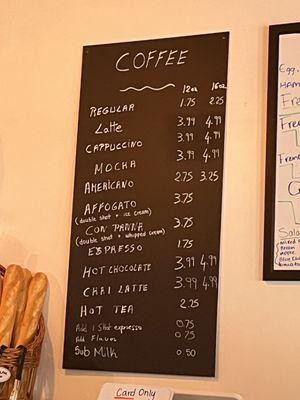 COFFEE
12oz 16oz
REGULAR 1.75 2.25
Latte 3.99 4.99
CAPPUCCINO 3.99 4.99
MOCHA 3.99 4.99
AMERICANO 2.75 3.25
AFFOGATO 3.75
(double shot + ice cream)
CON PANNA 3.75
(double shot + whipped cream)
ESPRESSO 1.75
HOT CHOCOLATE 3.99 4.99
CHAI LATTE 3.99 4.99
HOT TEA 2.25
Add 1 Shot espresso 0.75
Add Flavor 0.75
Sub Milk 0.50
Card Only
Egg
HAM
Fre
Frem
Frem
Sala